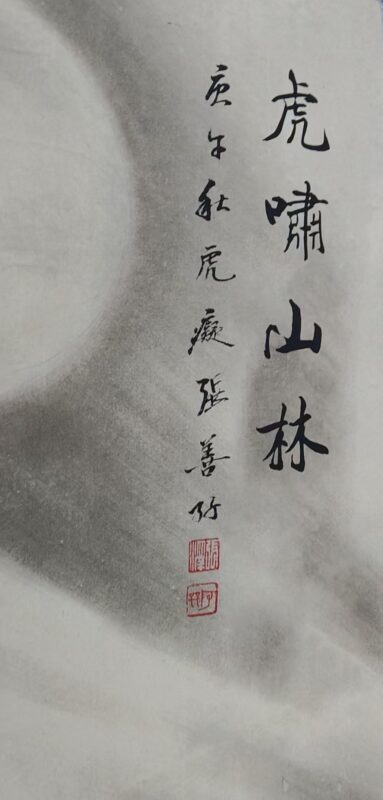 虎嘯山林
庚午秋虎癡張善孖